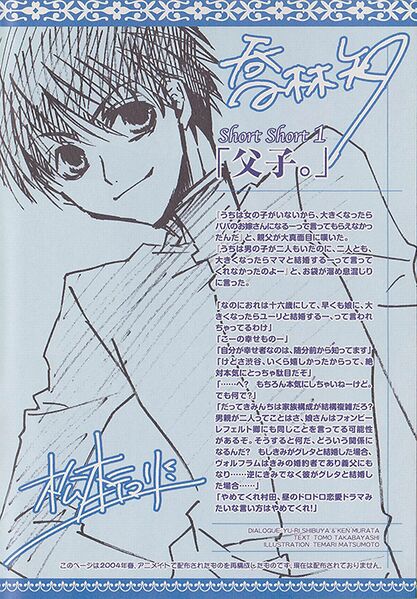 喬林知
Short Short 1
「父子。」
「うちは女の子がいないから、大きくなったら
パパのお嫁さんになるーって言ってもらえなかっ
たんだ」と、親父が大真面目に嘆いた。
「うちは男の子が二人もいたのに、二人とも、
大きくなったらママと結婚するーって言って
くれなかったのよー」と、お袋が溜め息混じり
に言った。
「なのにおれは十六歳にして、早くも娘に、大
きくなったらユーリと結婚するー、って言われ
ちゃってるわけ」
「こーの幸せものー」
「自分が幸せ者なのは、随分前から知ってます」
「けどさ渋谷、いくら嬉しかったからって、絶
対本気にとっちゃ駄目だぞ」
「……へ？　もちろん本気にしちゃいねーけど。
でも何で？」
「だってきみんちは家族構成が結構複雑だろ？
男親が二人ってことはさ、娘さんはフォンビー
レフェルト卿にも同じことを言ってる可能性
があるぞ。そうすると何だ、どういう関係に
なるんだ？　もしきみがグレタと結婚した場合、
ヴォルフラムはきみの婚約者であり義父にも
なり……逆にきみでなく彼がグレタと結婚し
た場合……」
「やめてくれ村田、昼のドロドロ恋愛ドラマみ
たいな言い方はやめてくれ！」
松本テマリ
DIALOGUE:YU-RI SHIBUYA & KEN MURATA
TEXT TOMO TAKABAYASHI
ILLUSTRATION TEMARI MATSUMOTO
このページは2004年春、アニメイトで配布されたものを再構成したものです。現在は配布されておりません。